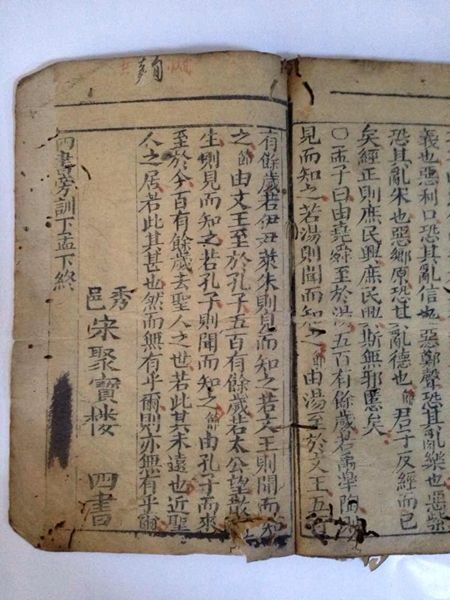 義也惡利口恐其亂信也惡鄭聲恐其亂樂也惡紫
恐其亂朱也惡鄉原恐其亂德也節君子反經而已
矣經正則庶民興庶民興斯無邪慝矣
○孟子曰由堯舜至於湯五百有餘歲若禹皋陶
見而知之若湯則聞而知之節由湯至於文王五
有餘歲若伊尹萊朱則見而知之若文王則聞而知
之節由文王至於孔子五百有餘歲若太公望散
生則見而知之若孔子則聞而知之節由孔子而來
至於今百有餘歲去聖人之世若此其未遠也近聖
人之居若此其甚也然而無有乎爾則亦無有乎爾
秀邑宋聚寶樓 四書
書旁訓下孟下終